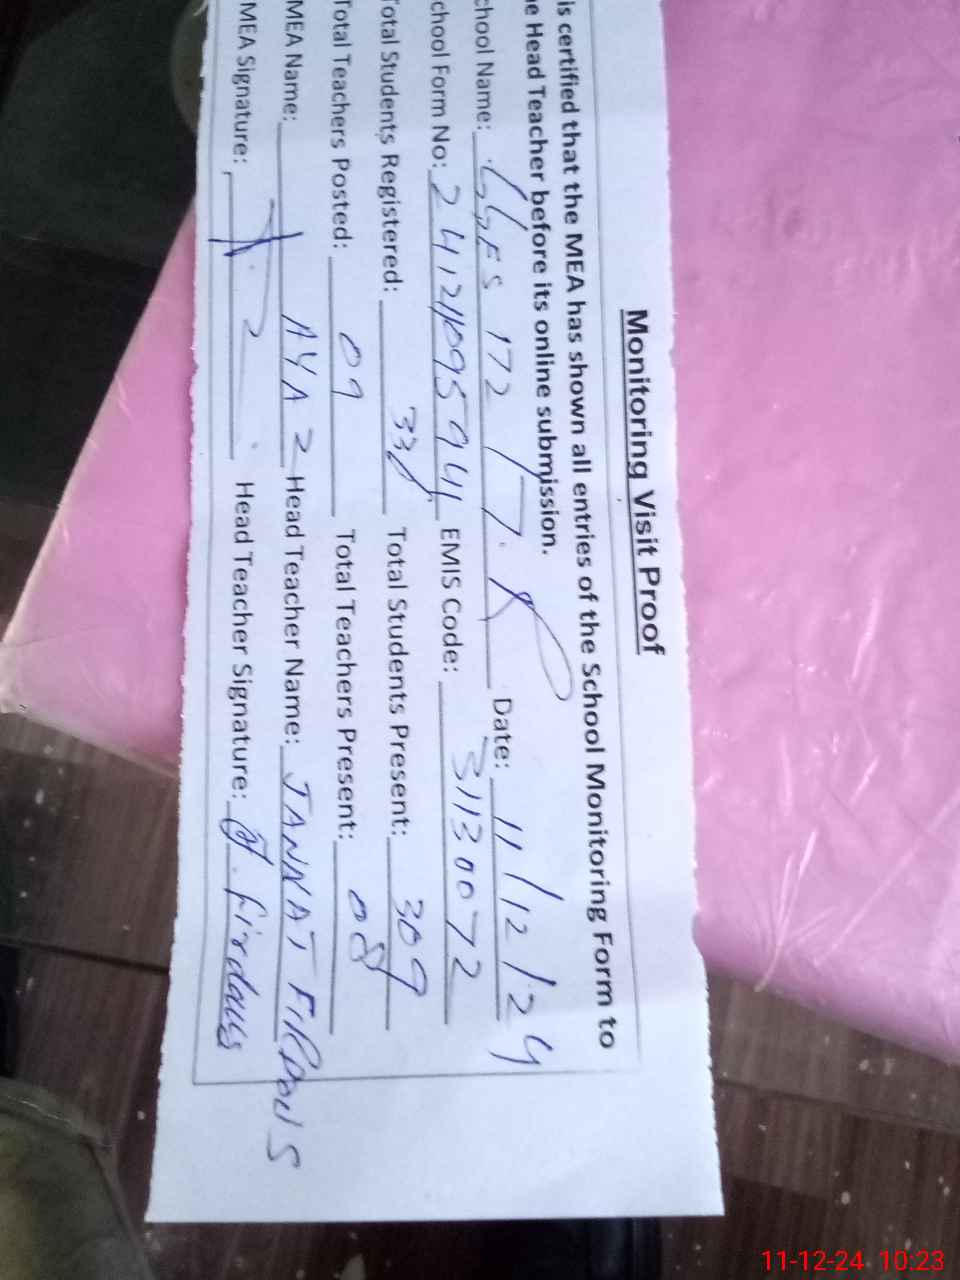 Monitoring Visit Proof
is certified that the MEA has shown all entries of the School Monitoring Form to
e Head Teacher before its online submission.
chool Name: GGES 172 7.R Date: 11/12/24
chool Form No: 24121109594 EMIS Code: 31130072
Total Students Registered: 338 Total Students Present: 309
Total Teachers Posted: 09 Total Teachers Present: 08
MEA Name: AYAZ Head Teacher Name: JANNAT FIRDOUS
MEA Signature: Head Teacher Signature: J. Firdous
11-12-24 10:23